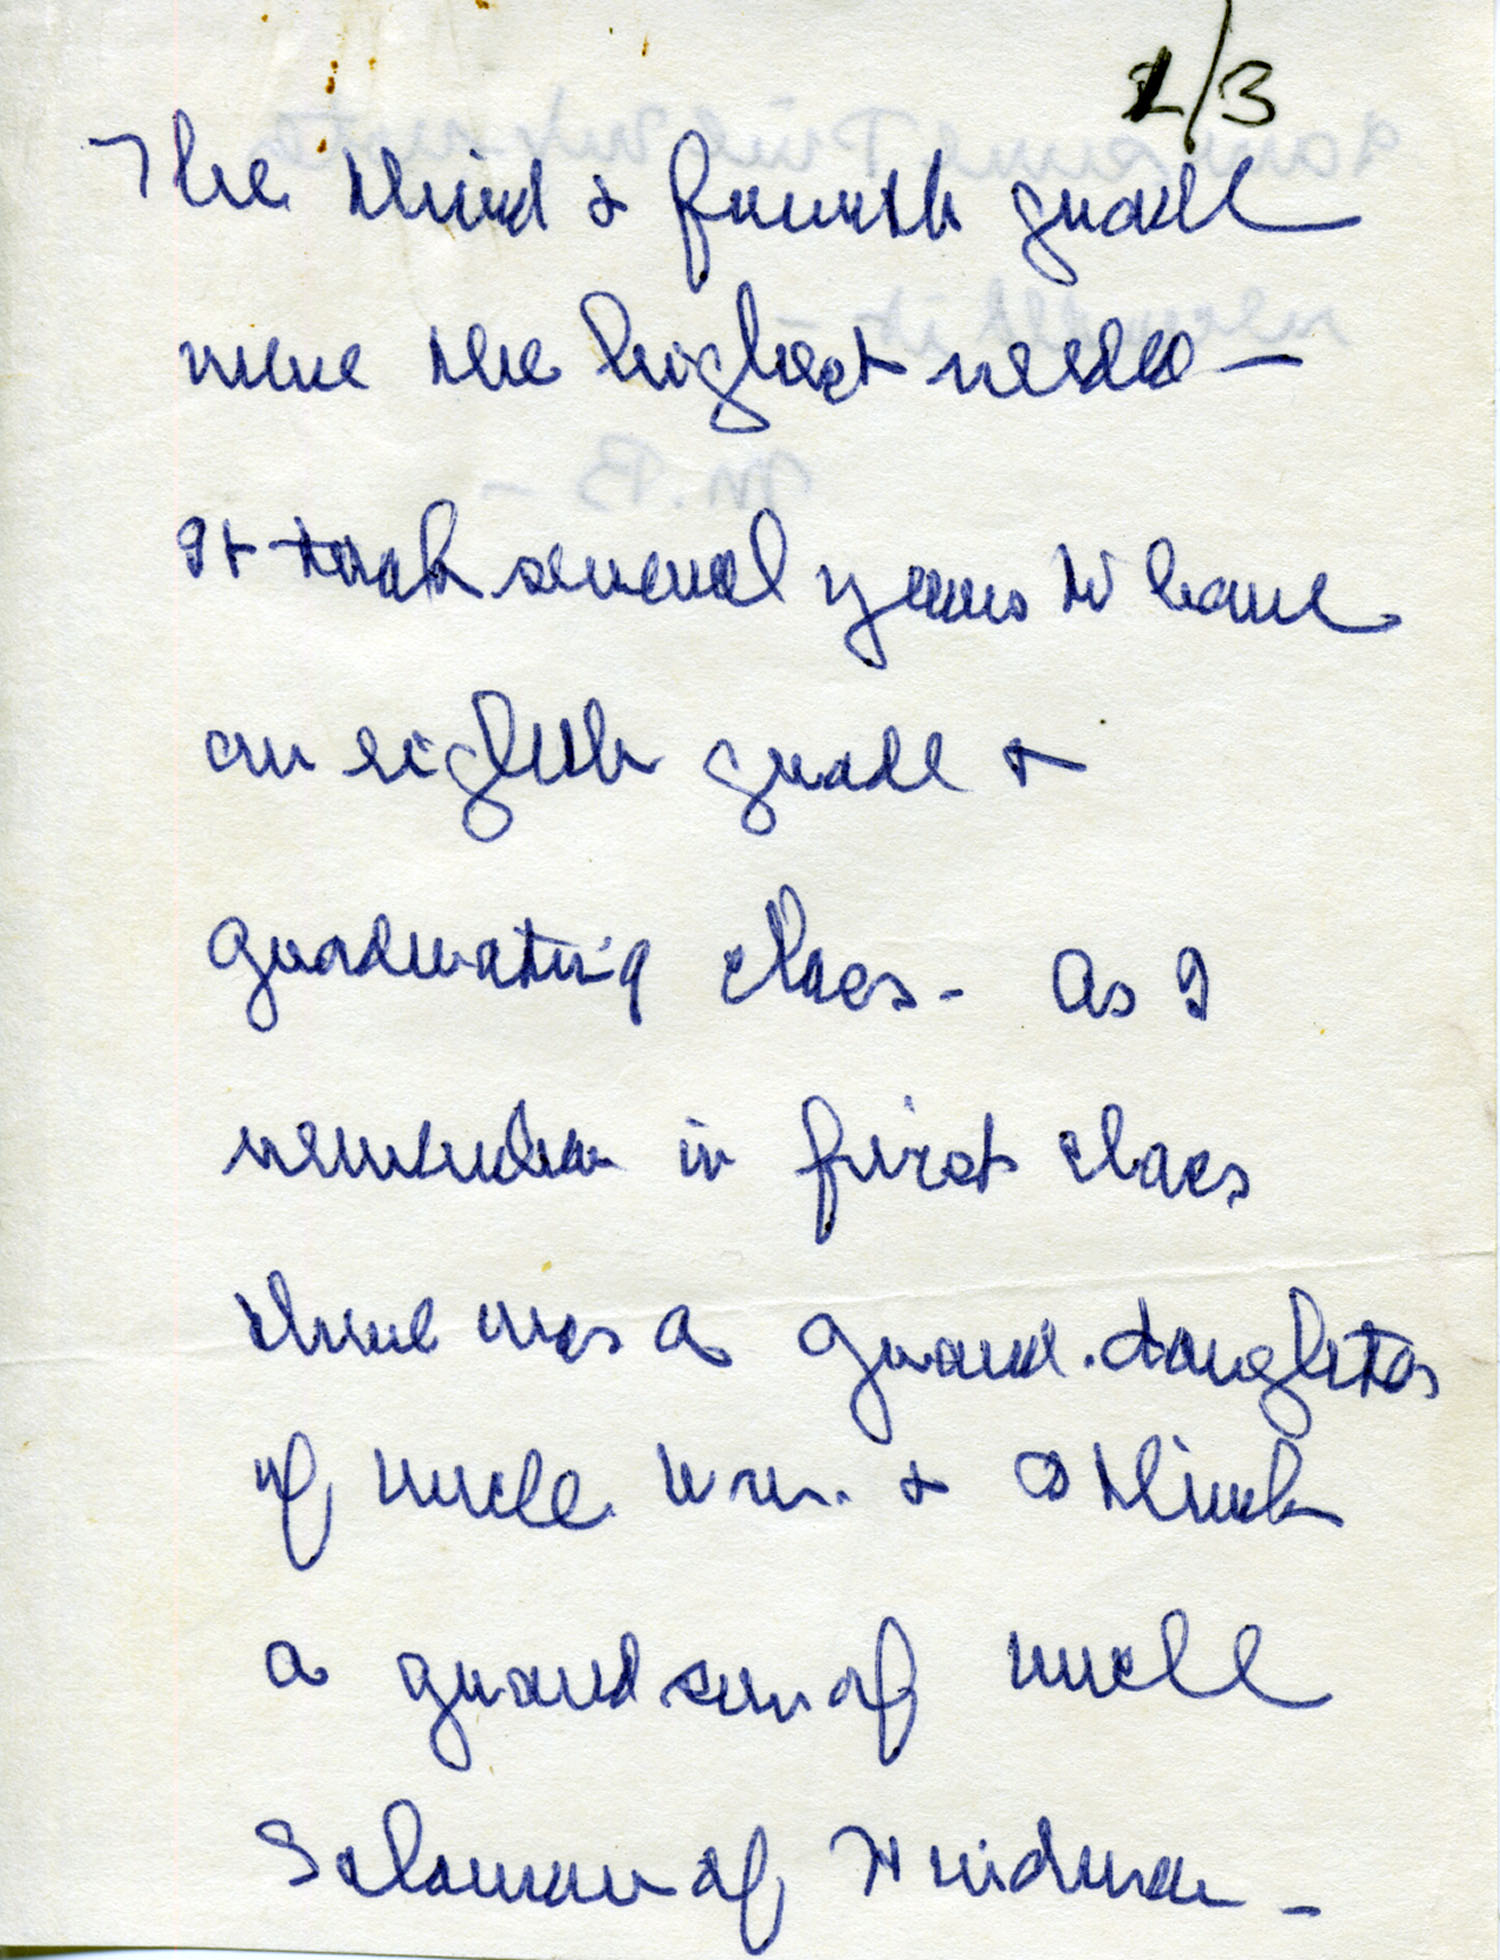 2/3
The third & fourth grade
were the highest needed -
It took several years to have
an eighth grade &
graduating class - As I
remember in first class
there was a grand.daughter
of uncle Wm. & I think
a grandson of uncle
Solomon of